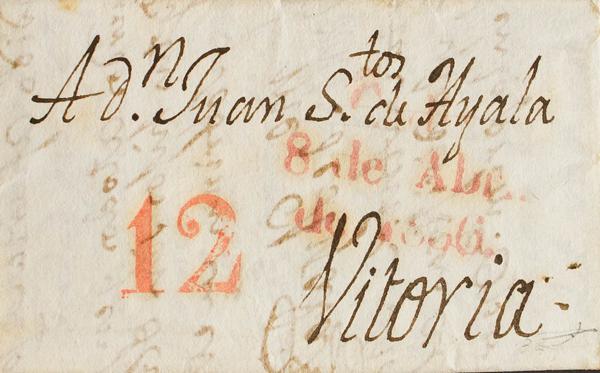 A d.n Juan S.tos de Ayala
8 de Ab
de
12
Vitoria